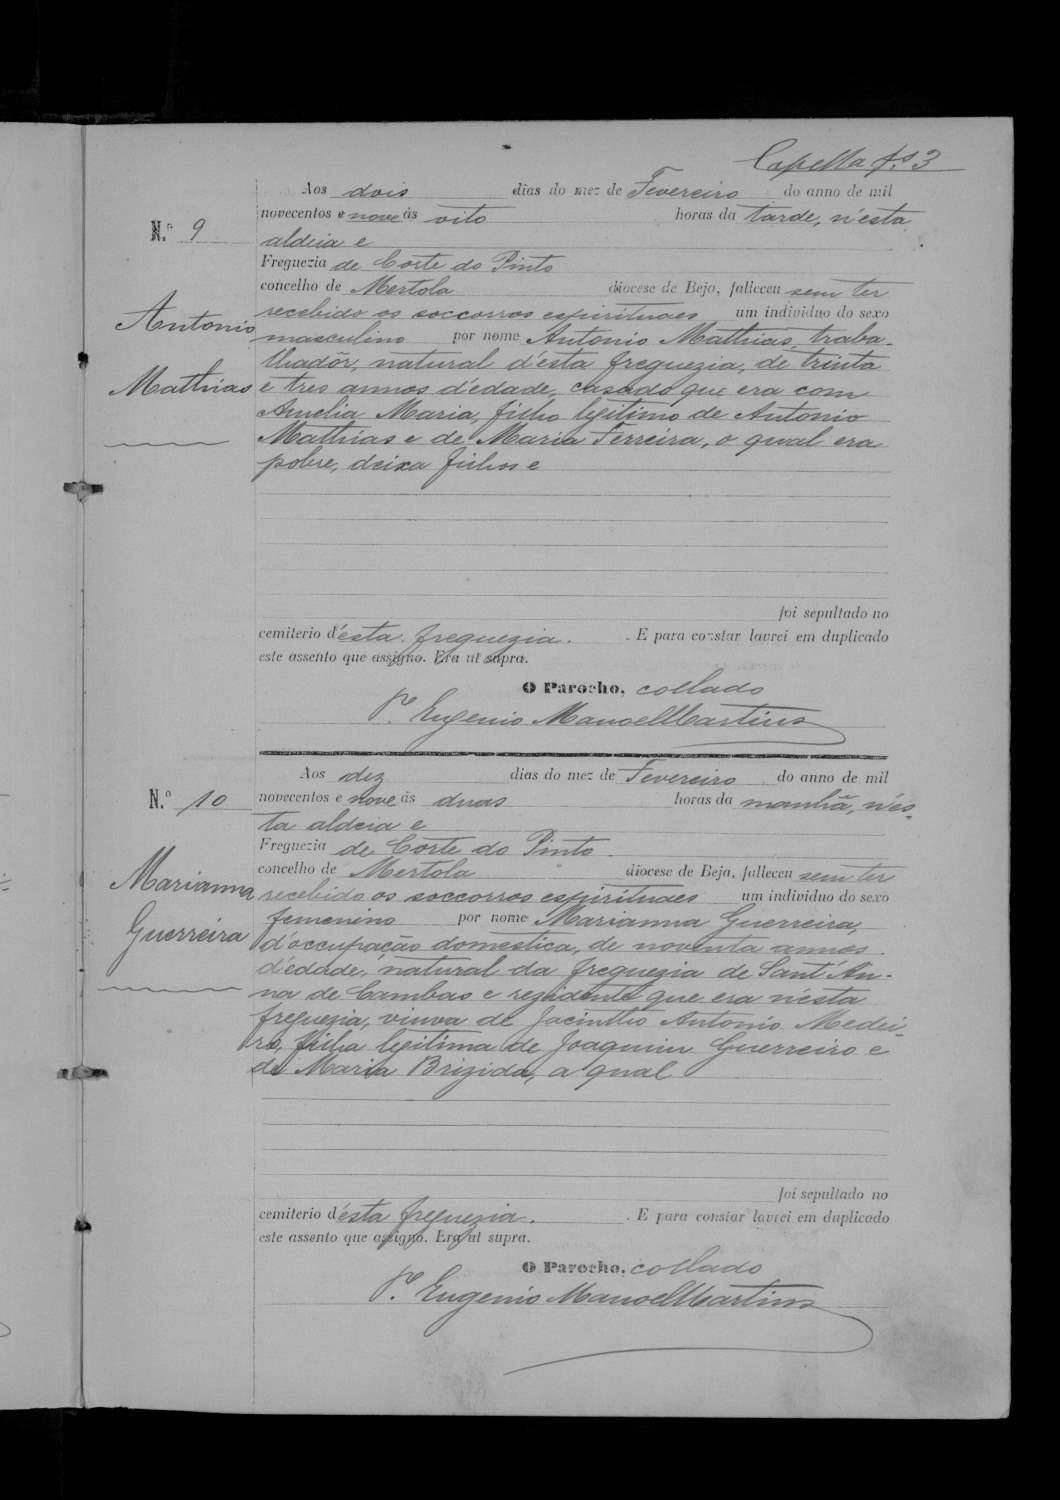 Capella fs 3
Aos dois dias do mez de Fevereiro do anno de mil
novecentos e nove ás oito horas da tarde, n'esta
N.º 9
aldeia e
Freguezia de Corte do Pinto
concelho de Mertola diocese de Beja, falleceu sem ter
recebido os soccorros espirituaes um individuo do sexo
Antonio
masculino por nome Antonio Mathias, traba-
lhadôr, natural d'esta freguezia, de trinta
Mathias
e tres annos d'edade, casado que era com
Amelia Maria, filho legitimo de Antonio
Mathias e de Maria Ferreira, o qual era
pobre, deixa filhos e
foi sepultado no
cemiterio d'esta freguezia. . E para constar lavrei em duplicado
este assento que assigno. Era ut supra.
O Parocho, collado
P.e Eugenio Manoel Martins
Aos dez dias do mez de Fevereiro do anno de mil
N.º 10
novecentos e nove ás duas horas da manhã, n'es-
ta aldeia e
Freguezia de Corte do Pinto.
concelho de Mertola diocese de Beja, falleceu sem ter
Marianna
recebido os soccorros espirituaes um individuo do sexo
femenino por nome Marianna Guerreira,
Guerreira
d'occupação domestica, de noventa annos
d'edade, natural da freguezia de Sant'An-
na de Cambas e rezidente que era n'esta
freguezia, viuva de Jacintho Antonio Medei-
ro, filha legitima de Joaquim Guerreiro e
de Maria Brizida, a qual
foi sepultado no
cemiterio d'esta freguezia. . E para constar lavrei em duplicado
este assento que assigno. Era ut supra.
O Parocho, collado
P.e Eugenio Manoel Martins